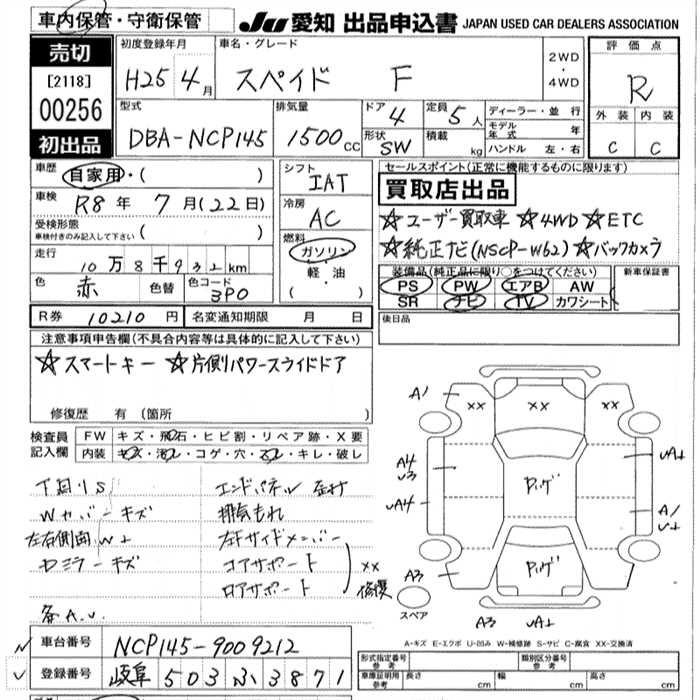 車内保管・守衛保管
JU 愛知 出品申込書 JAPAN USED CAR DEALERS ASSOCIATION
売切
[2118]
00256
初出品
初度登録年月
H25 4月
車名・グレード
スペイド F
2WD
・
4WD
評価点
R
外装 内装
C C
型式
DBA-NCP145
排気量
1500 CC
ドア 4
定員 5人
形状 SW
積載 kg
ディーラー・並行
モデル年式 年
ハンドル 左・右
車歴 自家用・( )
車検 R8年 7月(22日)
受検形態
車検付きのみ記入して下さい ( )
走行
10万8千932km
色 赤 色替 色コード 3P0
シフト
IAT
冷房
AC
燃料
ガソリン
・
軽・油
( )
セールスポイント(正常に機能するものに限ります)
買取店出品
☆ユーザー買取車 ☆4WD ☆ETC
☆純正ナビ(NSCP-W62) ☆バックカメラ
装備品(純正品に限り○をつけてください) 新車保証書
PS PW エアB AW
SR ナビ TV カワシート
R券 10210円 名変通知期限 月 日
後日品
注意事項申告欄(不具合内容等は具体的に記入して下さい)
☆スマートキー ☆片側パワースライドドア
修復歴 有(箇所 )
検査員記入欄
FW キズ・飛石・ヒビ割・リペア跡・X要
内装 キズ・汚レ・コゲ・穴・スレ・キレ・破レ
下回りS
Wカバーキズ
左右側面W±
ドミラーキズ
各A.U.
エンドパネル
排気もれ
左Fサイドメンバー
コアサポート
ロアサポート
XX
修復
A1 XX XX XX
A4
U3
UA4
UA±
A1
U±
A3
Pいゲ
Pいゲ
スペア
A3 UA±
A-キズ E-エクボ U-凹み W-補修跡 S-サビ C-腐食 XX-交換済
車台番号 NCP145-9009212
登録番号 岐阜 503 ふ 3871
形式指定番号
参考
類別区分番号
参考
車庫証明用
参考
長さ cm 幅 cm 高さ cm